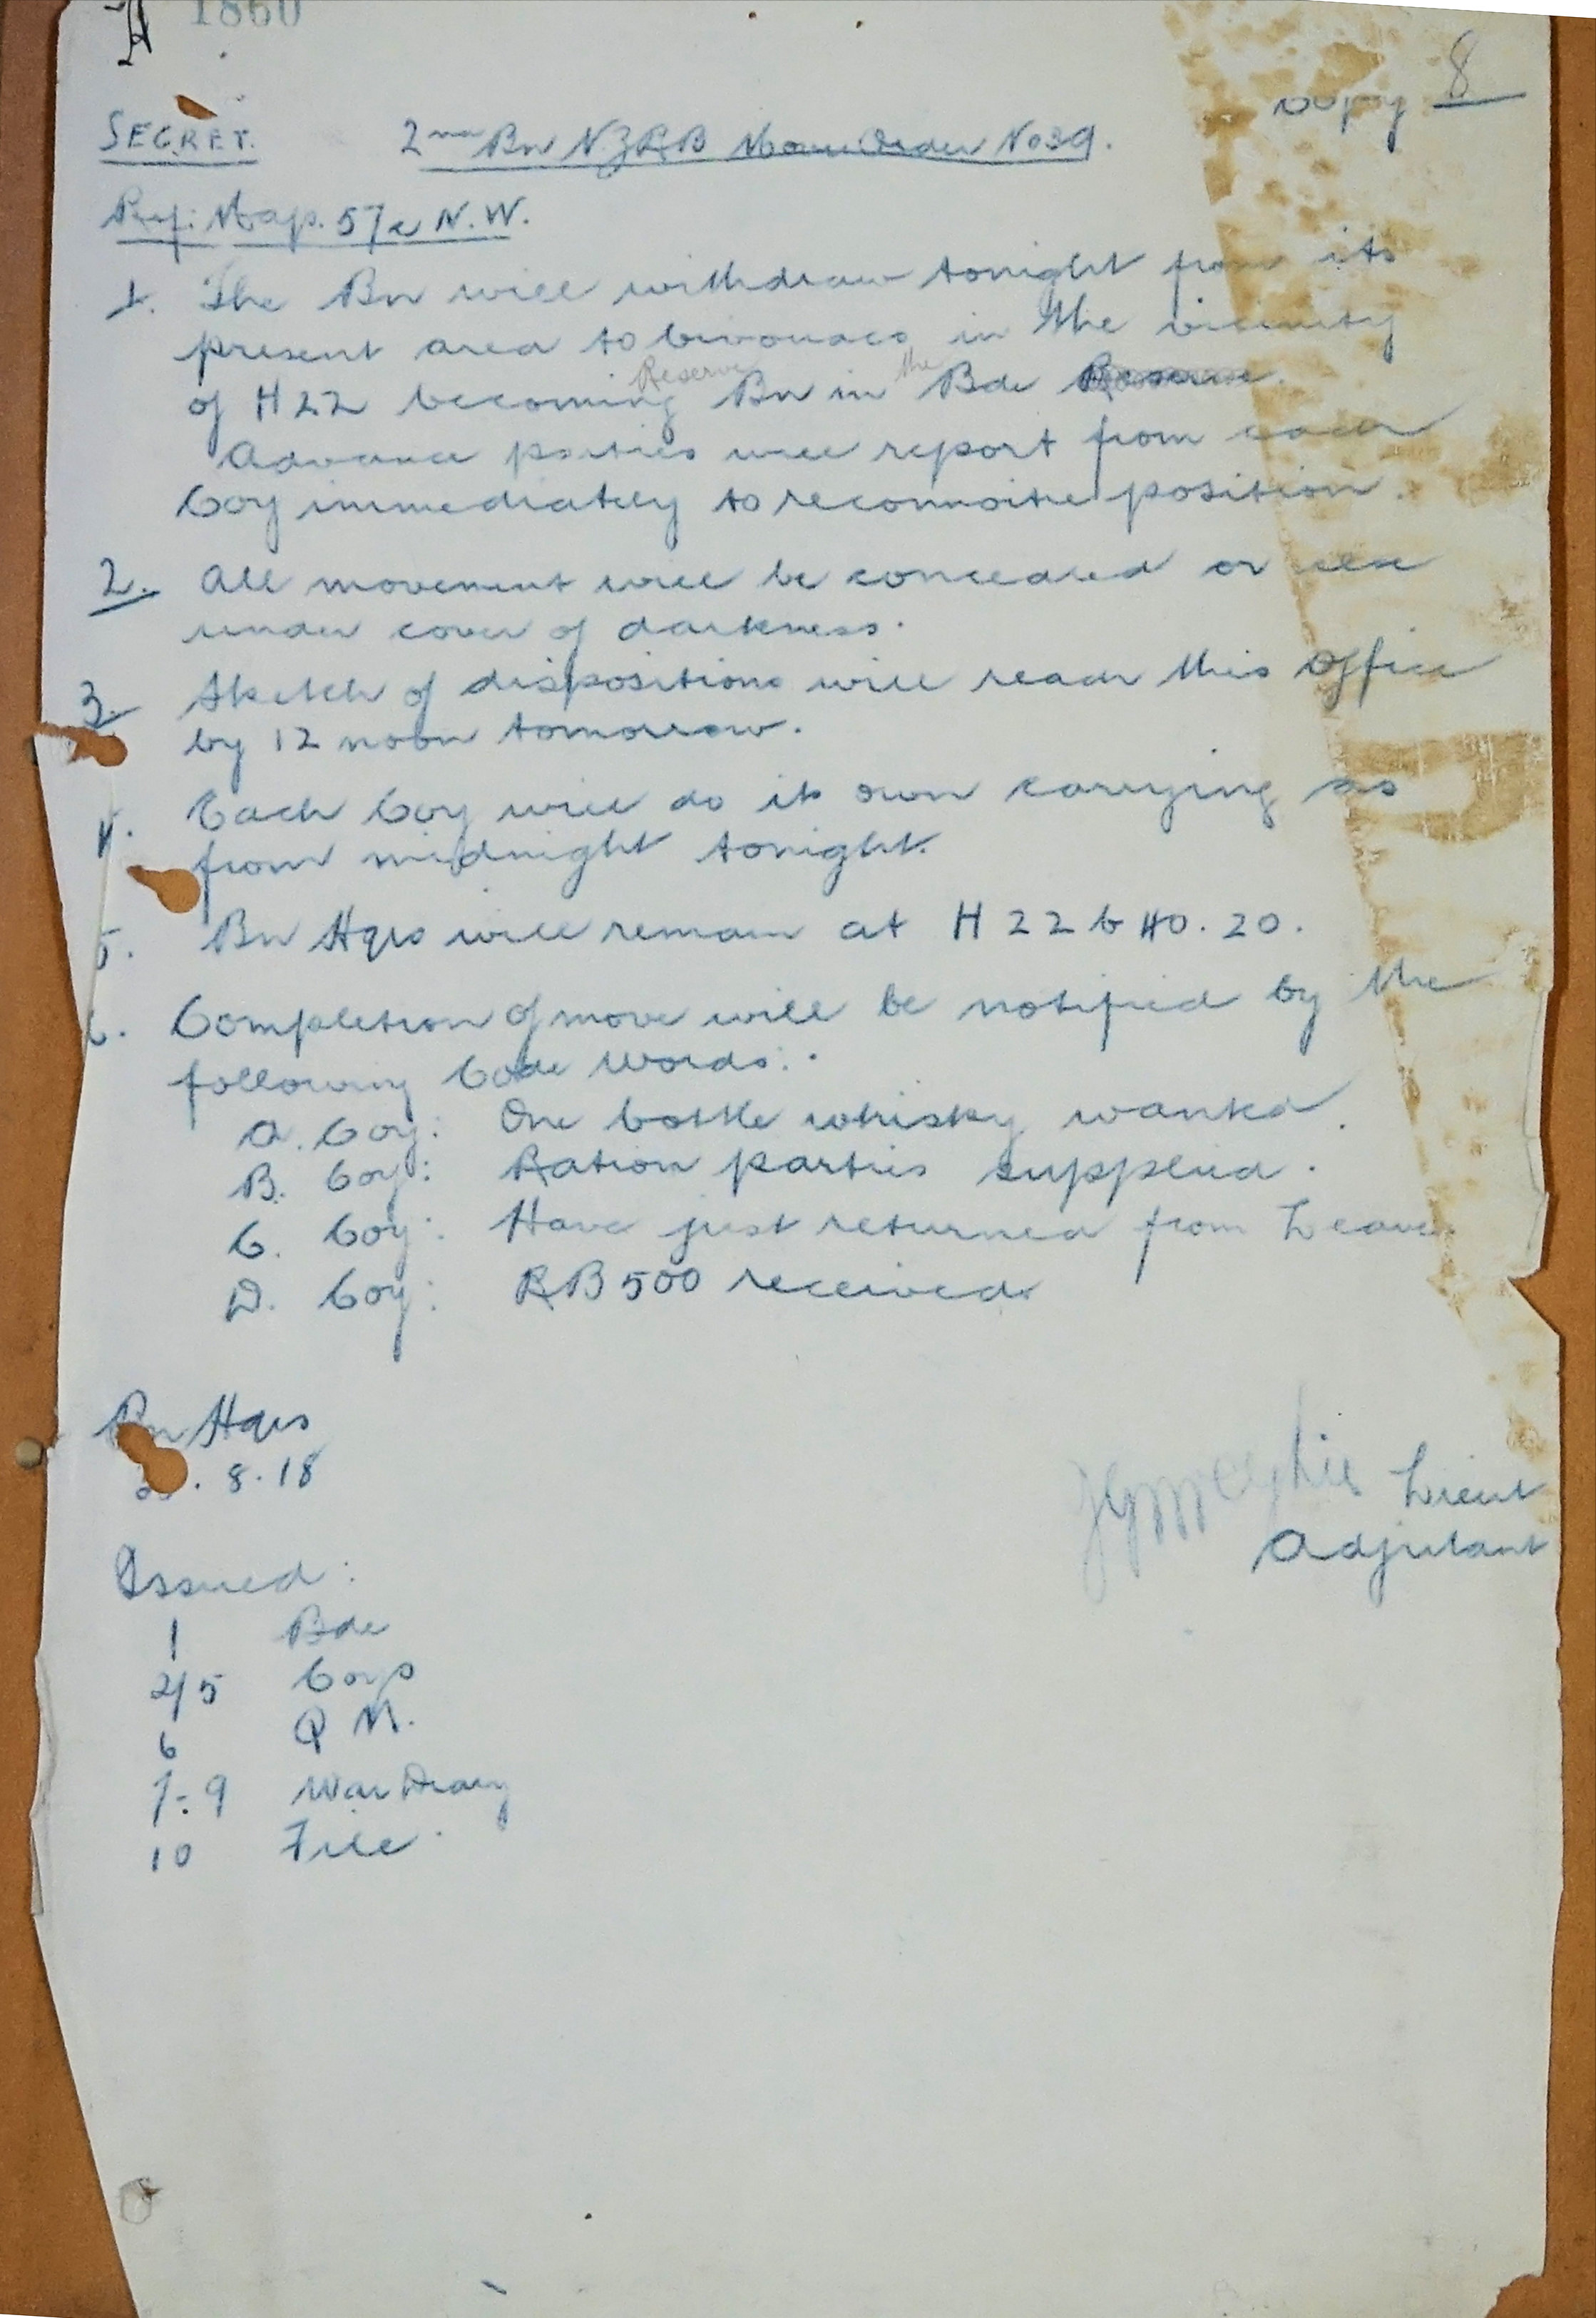 1860
Copy 8
SECRET. 2nd Bn N.Z.R.B Move Order No 39.
Ref: Map. 57c N.W.
1. The Bn will withdraw tonight from its
present area to bivouacs in the vicinity
of H22 becoming Reserve Bn in the Bde Reserve.
Advance parties will report from each
Coy immediately to reconnoitre position.
2. All movement will be concealed or else
under cover of darkness.
3. Sketch of dispositions will reach this Office
by 12 noon tomorrow.
4. Each Coy will do its own carrying as
from midnight tonight.
5. Bn Hqrs will remain at H22 b 40.20.
6. Completion of move will be notified by the
following Code Words:-
A. Coy: One bottle whisky wanted.
B. Coy: Ration parties supplied.
C. Coy: Have just returned from Leave
D. Coy: RB500 received.
Bn Hqrs
.8.18
Lieut
Adjutant
Issued:
1 Bde
2/5 Coys
6 Q M.
7-9 War Diary
10 File.